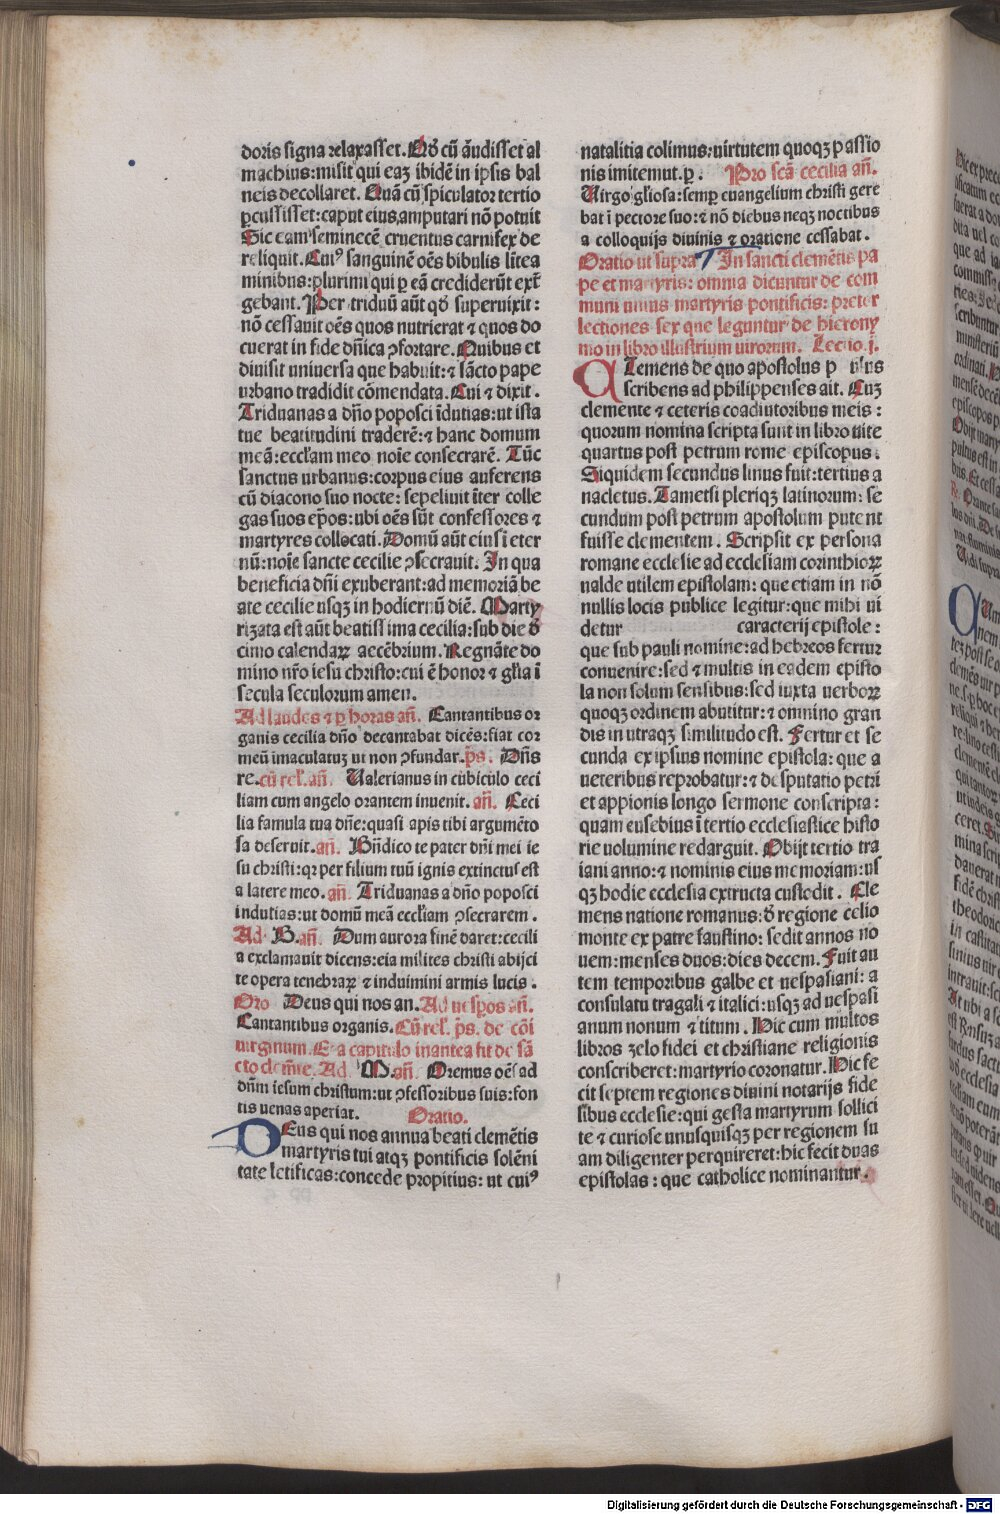 doris signa relaxasset. Qđ cū audisset al
machius: misit qui eaꝫ ibidē in ipsis bal
neis decollaret. Quā cū spiculator tertio
ꝑcussisset: caput eius amputari nō potuit
Sic eam seminecē cruentus carnifex de
reliquit. Cuiꝰ sanguinē oēs bibulis lītea
minibus: plurimi qui ꝑ eā crediderūt ext̄
gebant. Per triduū aūt qđ superuixit:
nō cessauit oēs quos nutrierat ⁊ quos do
cuerat in fide dn̄ica ꝯfortare. Quibus et
diuisit uniuersa que habuit: ⁊ sācto pape
urbano tradidit cōmendata. Cui ⁊ dixit.
Triduanas a dn̄o poposci īdutias: ut ista
tue beatitudini traderē: ⁊ hanc domum
meā: eccl̄iam meo noīe consecrarē. Tūc
sanctus urbanus: corpus eius auferens
cū diacono suo nocte: sepeliuit īter colle
gas suos ep̄os: ubi oēs sūt confessores ⁊
martyres collocati. Domū aūt eius ī eter
nū: noīe sancte cecilie ꝯsecrauit. In qua
beneficia dn̄i exuberant: ad memoriā be
ate cecilie usqꝫ in hodiernū diē. Marty
rizata est aūt beatissima cecilia: sub die đ
cimo calendaꝝ decēbrium. Regnāte do
mino nr̄o iesu christo: cui ē honor ⁊ gl̄ia ī
secula seculorum amen.
Ad laudes ⁊ ꝑ horas an̄. Cantantibus or
ganis cecilia dn̄o decantabat dicēs: fiat cor
meū imaculatuꝫ ut non ꝯfundar. p̄s. Dn̄s
re. cū rel'. an̄. Ualerianus in cubiculo ceci
liam cum angelo orantem inuenit. an̄. Ceci
lia famula tua dn̄e: quasi apis tibi argumēto
sa deseruit. an̄. Bn̄dico te pater dn̄i mei ie
su christi: qꝛ per filium tuū ignis extinctus est
a latere meo. an̄. Triduanas a dn̄o poposci
indutias: ut domū meā eccl̄iam ꝯsecrarem.
Ad B. an̄. Dum aurora finē daret: cecili
a exclamauit dicens: eia milites christi abijci
te opera tenebraꝝ ⁊ induimini armis lucis.
Oro Deus qui nos an. Ad uesꝑos an̄.
Cantantibus organis. Cū rel'. p̄s. de cōi
uirginum. Et a capitulo inantea fit de sā
cto clem̄te. Ad M. an̄. Oremus oēs ad
dn̄m iesum christum: ut ꝯfessoribus suis: fon
tis uenas aperiat. Oratio.
DEus qui nos annua beati clemētis
martyris tui atqꝫ pontificis solēni
tate letificas: concede propitius: ut cuiꝰ
natalitia colimus: uirtutem quoqꝫ passio
nis imitemur. ꝑ. Pro scā cecilia an̄.
Uirgo gl̄iosa: semꝑ euangelium christi gere
bat ī pectore suo: ⁊ nō diebus neqꝫ noctibus
a colloquijs diuinis ⁊ oratione cessabat.
Oratio ut supra In sancti clemētis pa
pe et martyris: omnia dicuntur de com
muni unius martyris pontificis: preter
lectiones sex que leguntur de hierony
mo in libro illustrium uirorum. Lectio.j.
CLemens de quo apostolus p ulus
scribens ad philippenses ait. Cuꝫ
clemente ⁊ ceteris coadiutoribus meis:
quorum nomina scripta sunt in libro uite
quartus post petrum rome episcopus.
Siquidem secundus linus fuit: tertius a
nacletus. Tametsi pleriqꝫ latinorum: se
cundum post petrum apostolum putent
fuisse clementem. Scripsit ex persona
romane ecclesie ad ecclesiam corinthioꝝ
ualde utilem epistolam: que etiam in nō
nullis locis publice legitur: que mihi ui
detur caracterij epistole:
que sub pauli nomine: ad hebreos fertur
conuenire: sed ⁊ multis in eadem episto
la non solum sensibus: sed iuxta uerboꝝ
quoqꝫ ordinem abutitur: ⁊ omnino gran
dis in utraqꝫ similitudo est. Fertur et se
cunda ex ipsius nomine epistola: que a
ueteribus reprobatur: ⁊ disputatio petri
et appionis longo sermone conscripta:
quam eusebius ī tertio ecclesiastice histo
rie uolumine redarguit. Obijt tertio tra
iani anno: ⁊ nominis eius memoriam: us
qꝫ hodie ecclesia extructa custodit. Cle
mens natione romanus: đ regione celio
monte ex patre faustino: sedit annos no
uem: menses duos: dies decem. Fuit au
tem temporibus galbe et uespasiani: a
consulatu tragali ⁊ italici: usqꝫ ad uespasi
anum nonum ⁊ titum. Hic cum multos
libros zelo fidei et christiane religionis
conscriberet: martyrio coronatur. Hic fe
cit septem regiones diuini notarijs fide
libus ecclesie: qui gesta martyrum sollici
te ⁊ curiose unusquisqꝫ per regionem su
am diligenter perquireret: hic fecit duas
epistolas: que catholice nominantur.
Digitalisierung gefördert durch die Deutsche Forschungsgemeinschaft - DFG